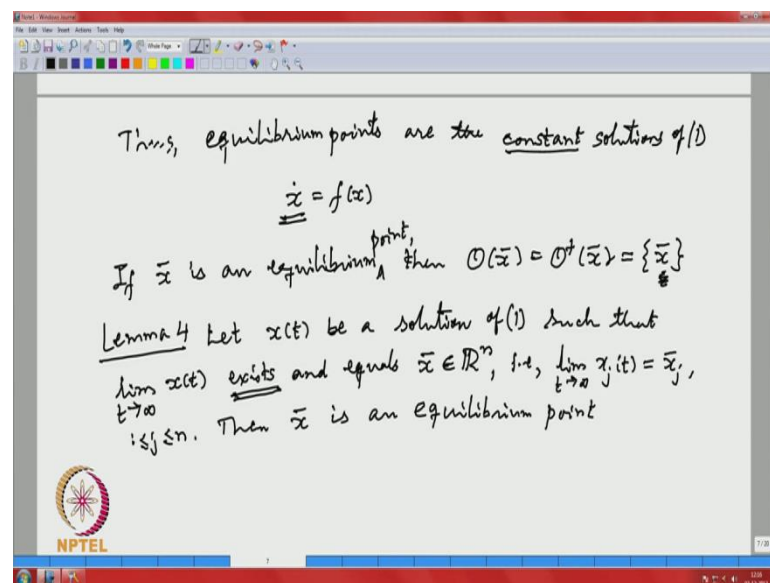 Note1 - Windows Journal
File Edit View Insert Actions Tools Help
Whole Page
B I
Thus, equilibrium points are the constant solutions of (1)
ẋ = f(x)
If x̄ is an equilibrium point, then O(x̄) = O⁺(x̄) = {x̄}
Lemma 4 Let x(t) be a solution of (1) such that
lim x(t) exists and equals x̄ ∈ ℝⁿ, i.e, lim x_j(t) = x̄_j,
t→∞ t→∞
1≤j≤n. Then x̄ is an equilibrium point
NPTEL
7
7/20